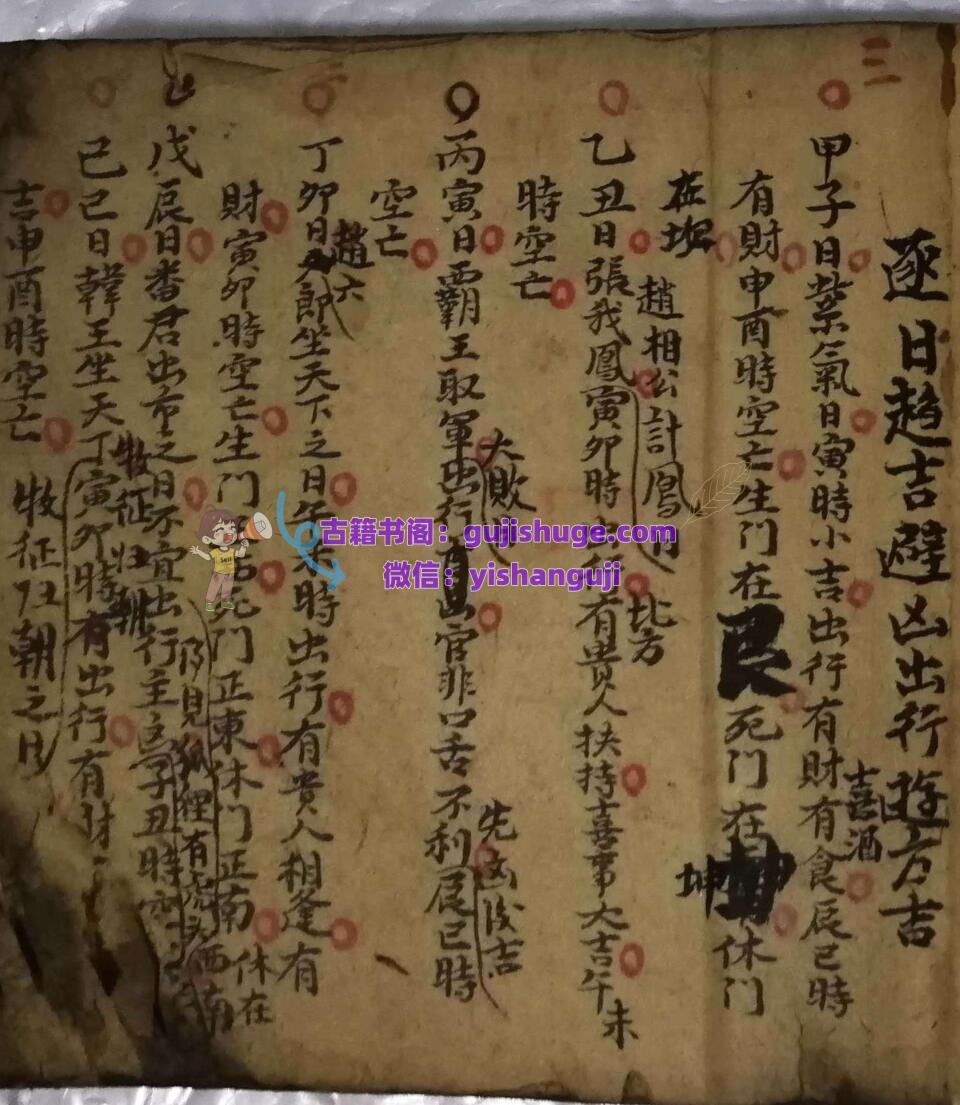 三
逐日趋吉避凶出行遊方吉
甲子日紫氣日寅時小吉出行有財有食辰巳時
喜酒
有財申酉時空亡生門在艮死門在坤休門
坤
在坎
趙相公計鳳
乙丑日張我鳳寅卯時出行有貴人扶持喜事大吉午未
北方
時空亡
丙寅日覇王取軍出行官非口舌不利辰巳時
大敗
先凶後吉
空亡
丁卯日郎坐天下之日時出行有貴人相逢有
趙六
財寅卯時空亡生門死門正東休門正南休在
西南
戊辰日番君出市之日不宜出行主子丑時空
見狐狸有虎頭
己巳日韓王坐天丁寅卯時有出行有財
牧征归朝
吉申酉時空亡
牧征归朝之日
古籍书阁：gujishuge.com
微信：yishanguji